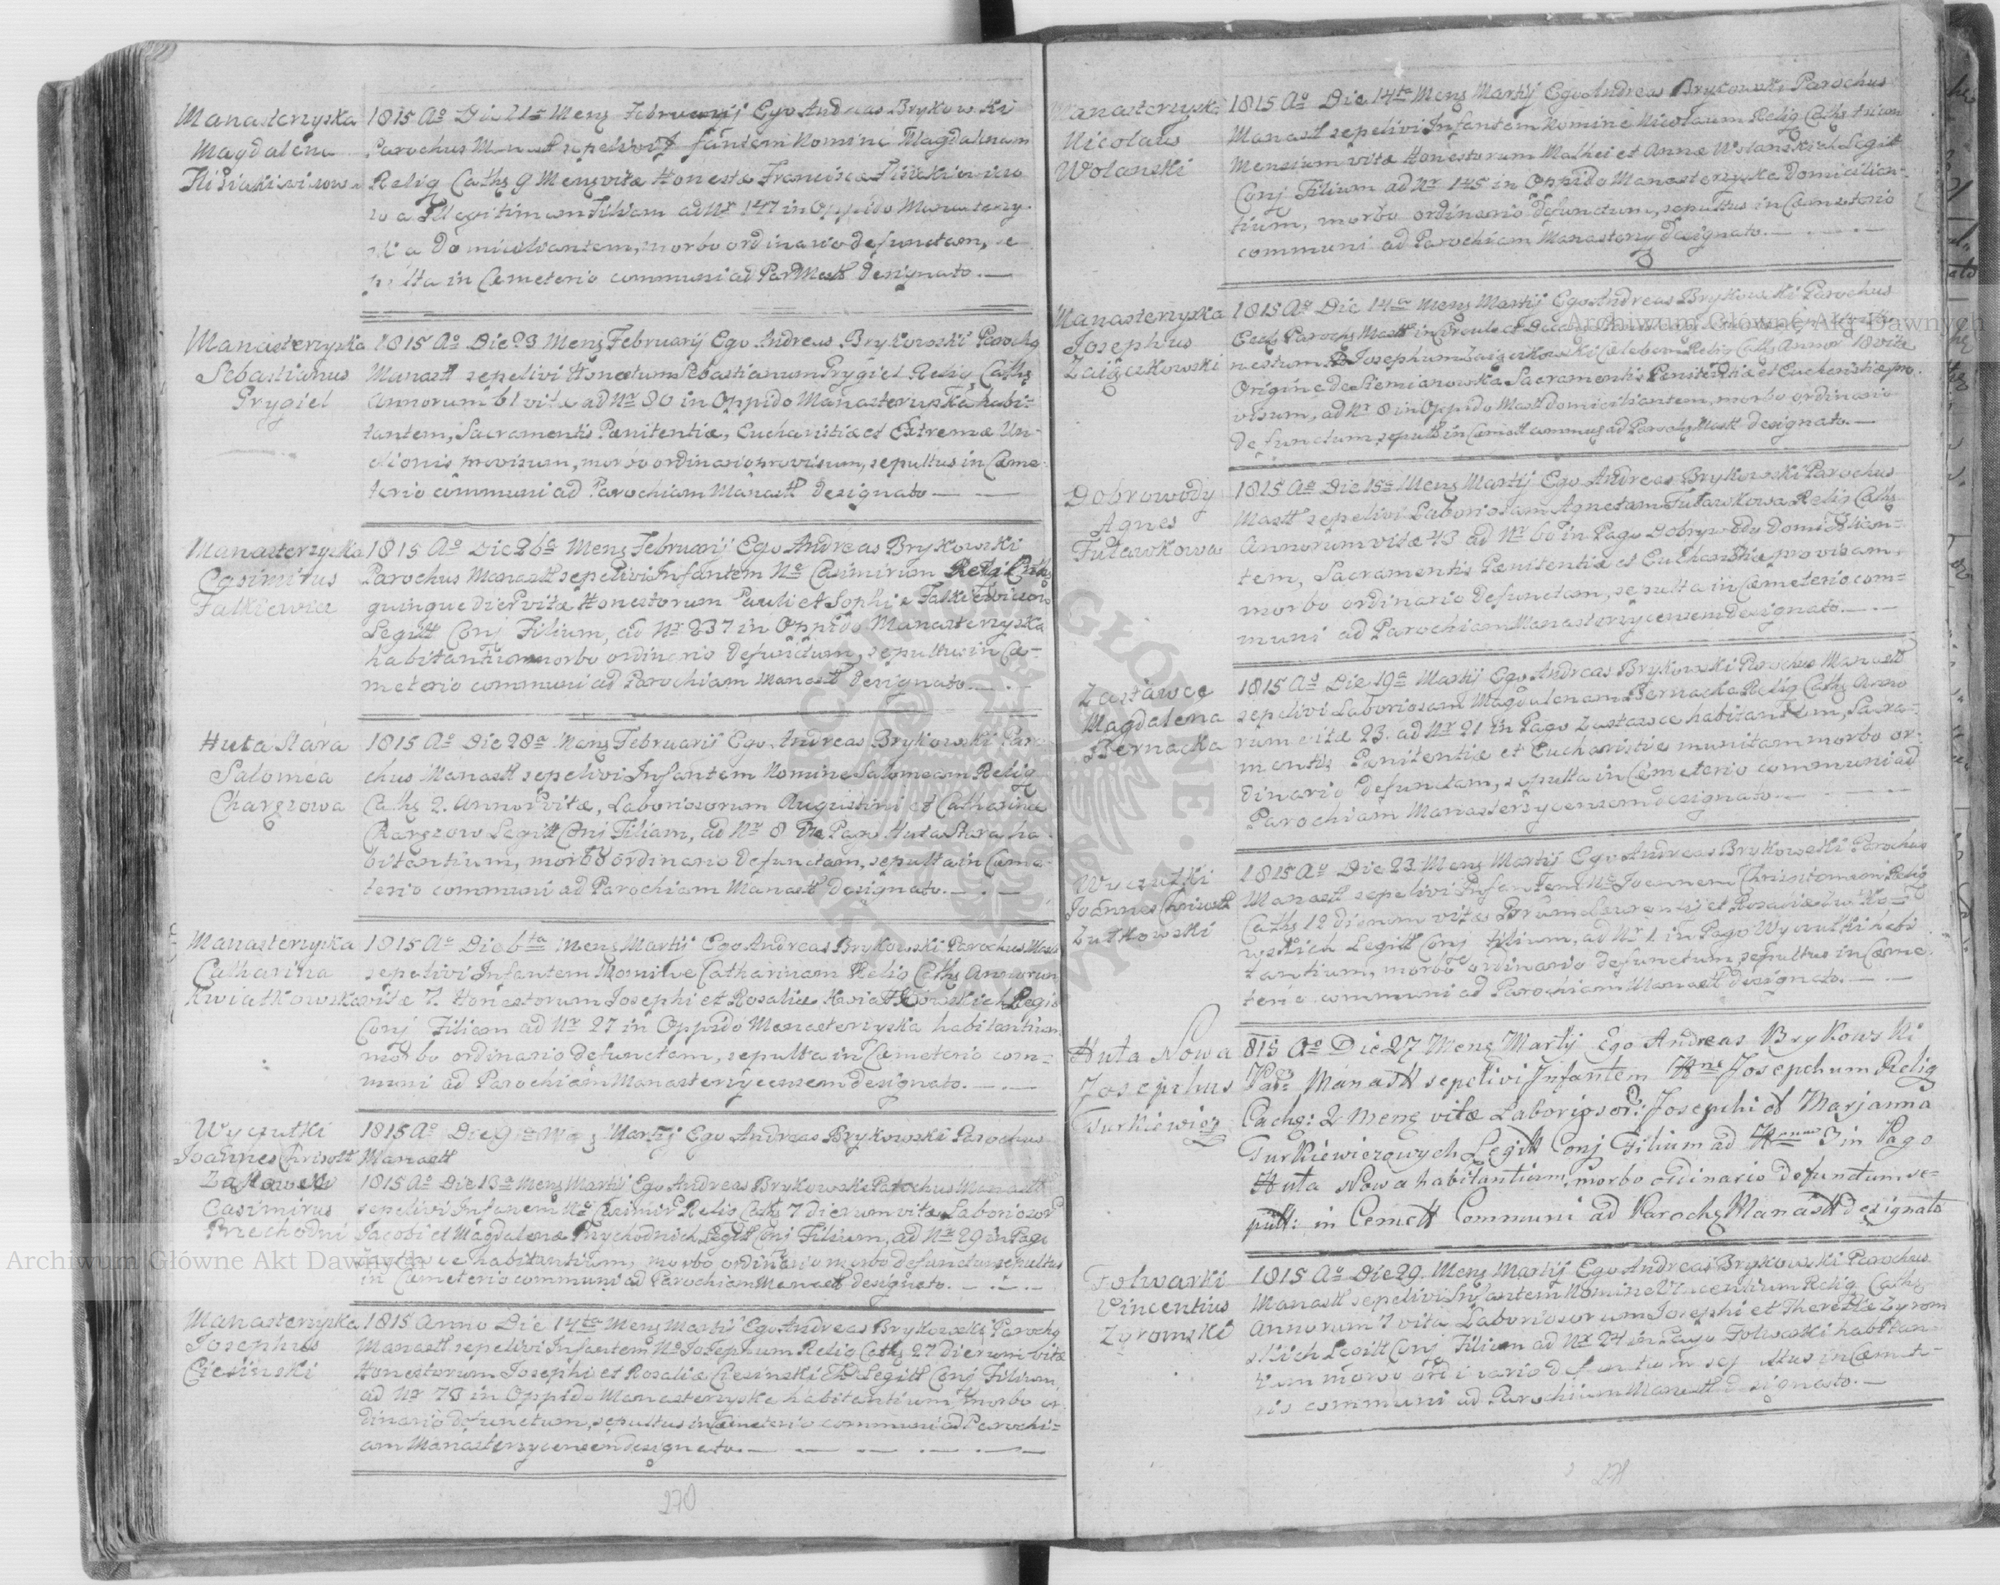 Manasterzyska
Magdalena
1815 Ao Die 21a Mens Februarij Ego Andreas Brykowski
Parochus Manast sepelivi Infantem Nomine Magdalenam
Relig Caths 9 Mens vitæ Honestæ Franciscæ
Illegitimam Filiam ad Nr 147 in Oppido Manasterzy-
ska Domiciliantem, morbo ordinario defunctam, se
pulta in Cæmeterio communi ad Par Mastt designato.
Manasterzyska
Sebastianus
Prygiel
1815 Ao Die 23 Mens Februarij Ego Andreas Brykowski Parochs
Manastt sepelivi Honestum Sebastianum Prygiel Relig Caths
Annorum 61 vitæ ad Nr 90 in Oppido Manasterzyska habi-
tantem, Sacramentis Pænitentiæ, Eucharistiæ et Extremæ Un-
ctionis provisum, morbo ordinario provisum, sepultus in Cæme-
terio communi ad Parochiam Manastt designato
Manasterzyska
Casimirus
Falkiewicz
1815 Ao Die 26a Mens Februarij Ego Andreas Brykowski
Parochus Manastt sepelivi Infantem Ne Casimirum Relig Caths
quinque Dier vitæ Honestorum Pauli et Sophiæ Falkiewiczow
Legitt Conj Filium, ad Nr 237 in Oppido Manasterzyska
habitantium morbo ordinario defunctum, sepultus in Cæ-
meterio communi ad Parochiam Manastt designato
Huta Stara
Salomea
Chargzowa
1815 Ao Die 28a Mens Februarij Ego Andreas Brykowski Paro
chus Manastt sepelivi Infantem Nomine Salomeam Relig
Caths 2. Annor vitæ, Laboriosorum Augustini et Catharinæ
Chargzow Legitt Conj Filiam, ad Nr 8 De Pago Huta Stara ha
bitantium, morbo ordinario defunctam, sepulta in Cæme-
terio communi ad Parochiam Manastt designato.
Manasterzyska
Catharina
Kwiatkowska
1815 Ao Die 6ta Mens Martij Ego Andreas Brykowski Parochus Mast
sepelivi Infantem Nomine Catharinam Relig Caths Annorum
vitæ 7. Honestorum Josephi et Rosaliæ Kwiatkowskich Legit
Conj Filiam ad Nr 27 in Oppido Manasterzyska habitantium
morbo ordinario defunctam, sepulta in Cæmeterio com-
muni ad Parochiam Manasterzycensem designato.
Wyczutki
Joannes Chrisostt
1815 Ao Die 9 Mens Martij Ego Andreas Brykowski Parochus
Manastt
Casimirus
Przechodni
1815 Ao Die 13a Mens Martij Ego Andreas Brykowski Parochus Manastt
sepelivi Infantem Ne Casimir Relig Caths 7 Dierum vitæ Laboriosor
Jacobi et Magdalenæ Przychodnich Legitt Conj Filium, ad Nr 29 in Pago
habitantium, morbo ordinario morbo defunctum sepultus
in Cæmeterio communi ad Parochiam Manastt designato.
Manasterzyska
Josephus
Ciesinski
1815 Anno Die 14ta Mens Martij Ego Andreas Brykowski Parochs
Manastt sepelivi Infantem Ne Josephum Relig Caths 27 Dierum vitæ
Honestorum Josephi et Rosaliæ Ciesinski Legitt Conj Filium,
ad Nr 78 in Oppido Manasterzyska habitantium, morbo or
dinario defunctum, sepultus in Cæmeterio communi ad Parochi-
am Manasterzycensem designato.
270
Manasterzysk:
Nicolaus
Wolanski
1815 Ao Die 14ta Mens Martij Ego Andreas Brykowski Parochus
Manastt sepelivi Infantem Nomine Nicolaum Relig Caths trium
Mensium vitæ Honestorum Mathei et Annæ Wolanskich Legitt
Conj Filium ad Nr 145 in Oppido Manasterzyska Domicilian-
tium, morbo ordinario defunctum, sepultus in Cæmeterio
communi ad Parochiam Manasterzy designato.
Manasterzyska
Josephus
Zaigczkowski
1815 Ao Die 14a Mens Martij Ego Andreas Brykowski Parochus
Eccls Parochs Mastt in Circulo et
nestum Josephum Zaigczkowski Cælebem Relig Caths Annor 18 vitæ
Origine de Siemianowka Sacramentis Pænitentiæ et Eucharistiæ pro
visum, ad Nr 8 in Oppido Mastt domiciliantem, morbo ordinario
defunctum, sepultt in Cæmett communi ad Parochs Mastt designato.
Dobrowody
Agnes
Futawkowa
1815 Ao Die 15a Mens Martij Ego Andreas Brykowski Parochus
Mastt sepelivi Laboriosam Agnetam Futawkowa Relig Caths
Annorum vitæ 43 ad Nr 60 in Pago Dobrywody Domicilian-
tem, Sacramentis Pænitentiæ et Eucharistiæ provisam,
morbo ordinario defunctam, sepulta in Cæmeterio com-
muni ad Parochiam Manasterzycensem designato.
Zastawce
Magdalena
Bernacka
1815 Ao Die 19a Martij Ego Andreas Brykowski Parochus Manastt
sepelivi Laboriosam Magdalenam Bernacka Relig Caths Anno
rum vitæ 23. ad Nr 21 in Pago Zastawce habitantem, Sacra-
mentis Pænitentiæ et Eucharistiæ munitam morbo or-
dinario defunctam, sepulta in Cæmeterio communi ad
Parochiam Manasterzycensem designato.
Wyczutki
Joannes Chrisostt
Zutkowski
1815 Ao Die 23 Mens Martij Ego Andreas Brykowski Parochus
Manastt sepelivi Infantem Ne Joannem Relig
Caths 12 dierum vitæ Laurentij et Rosaliæ Zutko-
wskich Legitt Conj filium, ad Nr 1 in Pago Wyczutki habi
tantium, morbo ordinario defunctum, sepultus in Cæme
terio communi ad Parochiam Manastt designato.
Huta Nowa
Josephus
Turkiewicz
815 Ao Die 27 Mens Martij Ego Andreas Brykowski
Par: Manastt sepelivi Infantem Nne Josepchum Relig
Cachs: 2 Mens vitæ Laboriosor: Josepchi et Marjanna
Turkiewiczowych Legitt Conj Filium ad 3 in Pago
Huta Nowa habitantium, morbo ordinario defunctum, se-
pult: in Cemett Communi ad Parochs Manastt designato
Folwarki
Vincentius
Zyromski
1815 Ao Die 29. Mens Martij Ego Andreas Brykowski Parochus
Manastt sepelivi Infantem Nomine Vincentium Relig Caths
Annorum 7 vitæ Laboriosorum Josephi et Theresiæ Zyrom
skich Legitt Conj Filium ad Nr 24 in Pago Folwarki habitan-
tium morbo ordinario defunctum sepultus in Cæmete-
rio communi ad Parochiam Manastt designato.
271
Archiwum Główne Akt Dawnych
Archiwum Główne Akt Dawnych